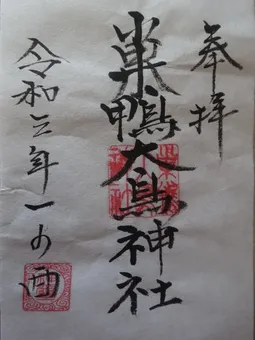 奉拝
巣鴨大鳥神社
令和三年一の酉